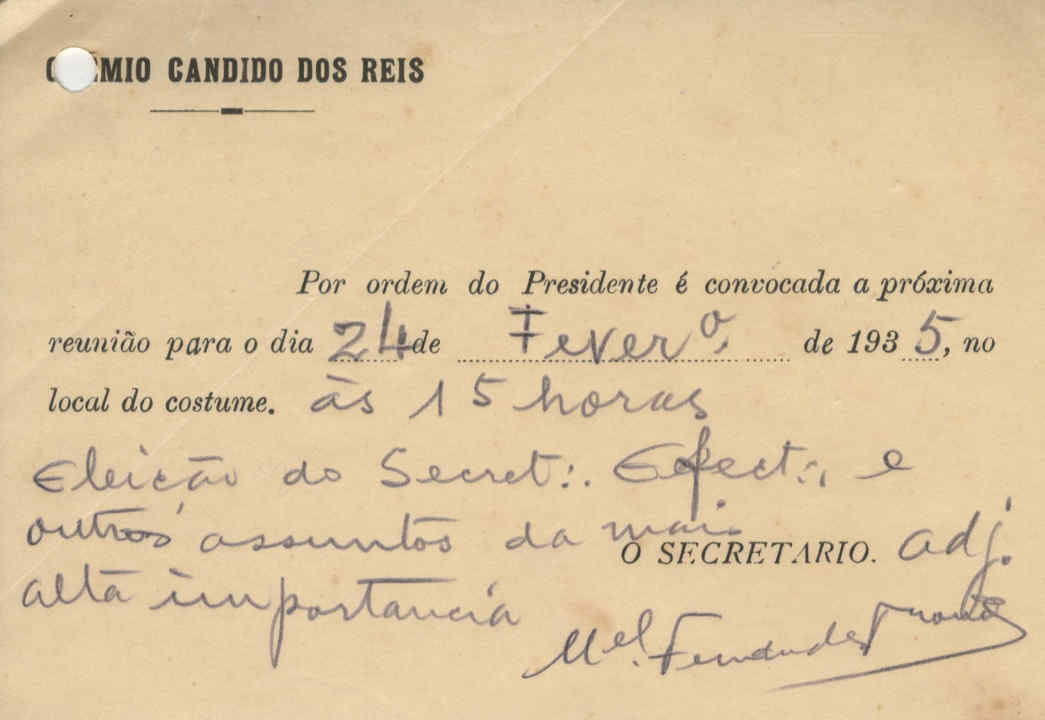 GRÉMIO CANDIDO DOS REIS
Por ordem do Presidente é convocada a próxima
reunião para o dia 24 de Feverº. de 1935, no
local do costume. às 15 horas
Eleição do Secret∴ Efect∴, e
outros assuntos da mais
O SECRETARIO. adj.
alta importancia
Mel. Fernandes